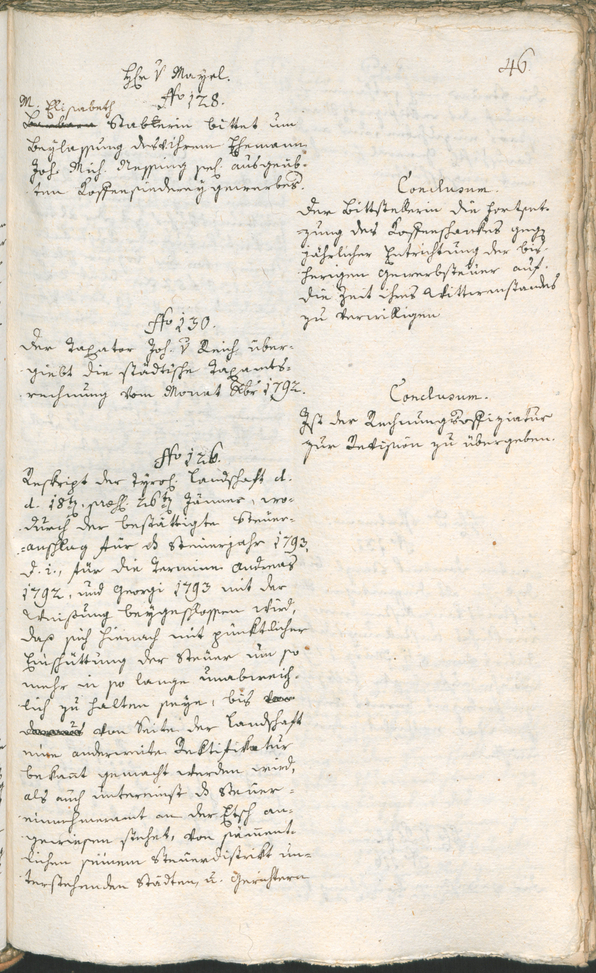 46.
Hr. v. Mayrl.
No 128.
M. Elisabeth
Barbara Stablerin bittet um
Beylassung des ihrem Ehemann
Joh. Mich. Messing sel. ausgeüb-
ten Koffeesiederey gewerbes.
Conclusum.
Der Bittstellerin die Fortset-
zung des Koffeeschankes gegen
jährlicher Entrichtung der bis-
herigen Gewerbsteuer auf
die Zeit ihres Wittwenstandes
zu verwilligen
No 130.
Der Taxator Joh. v. Reich über-
giebt die städtische Taxamts-
rechnung vom Monat Xbr 1792.
Conclusum.
Ist der Rechnungsoffiziatur
zur Revision zu übergeben.
No 126.
Reskript der Tyrol. Landschaft d.
d. 18t. præs. 26t. Jänner, wo-
durch der bestättigte Steuer-
anschlag für das Steuerjahr 1793,
d. i., für die Termine Andreas
1792, und Georgi 1793 mit der
Weisung beygeschlossen wird,
daß sich hienach mit pünktlicher
Einschüttung der Steuer um so
mehr in so lange unabweich-
lich zu halten seye, bis
von Seite der Landschaft
eine anderweite Rektifikatur
bekant gemacht werden wird,
als auch untereinst das Steuer-
einnehmeramt an der Etsch an-
gewiesen stehet, von sämment-
lichen seinem Steuerdistrikt un-
terstehenden Städten, u. Gerichtern